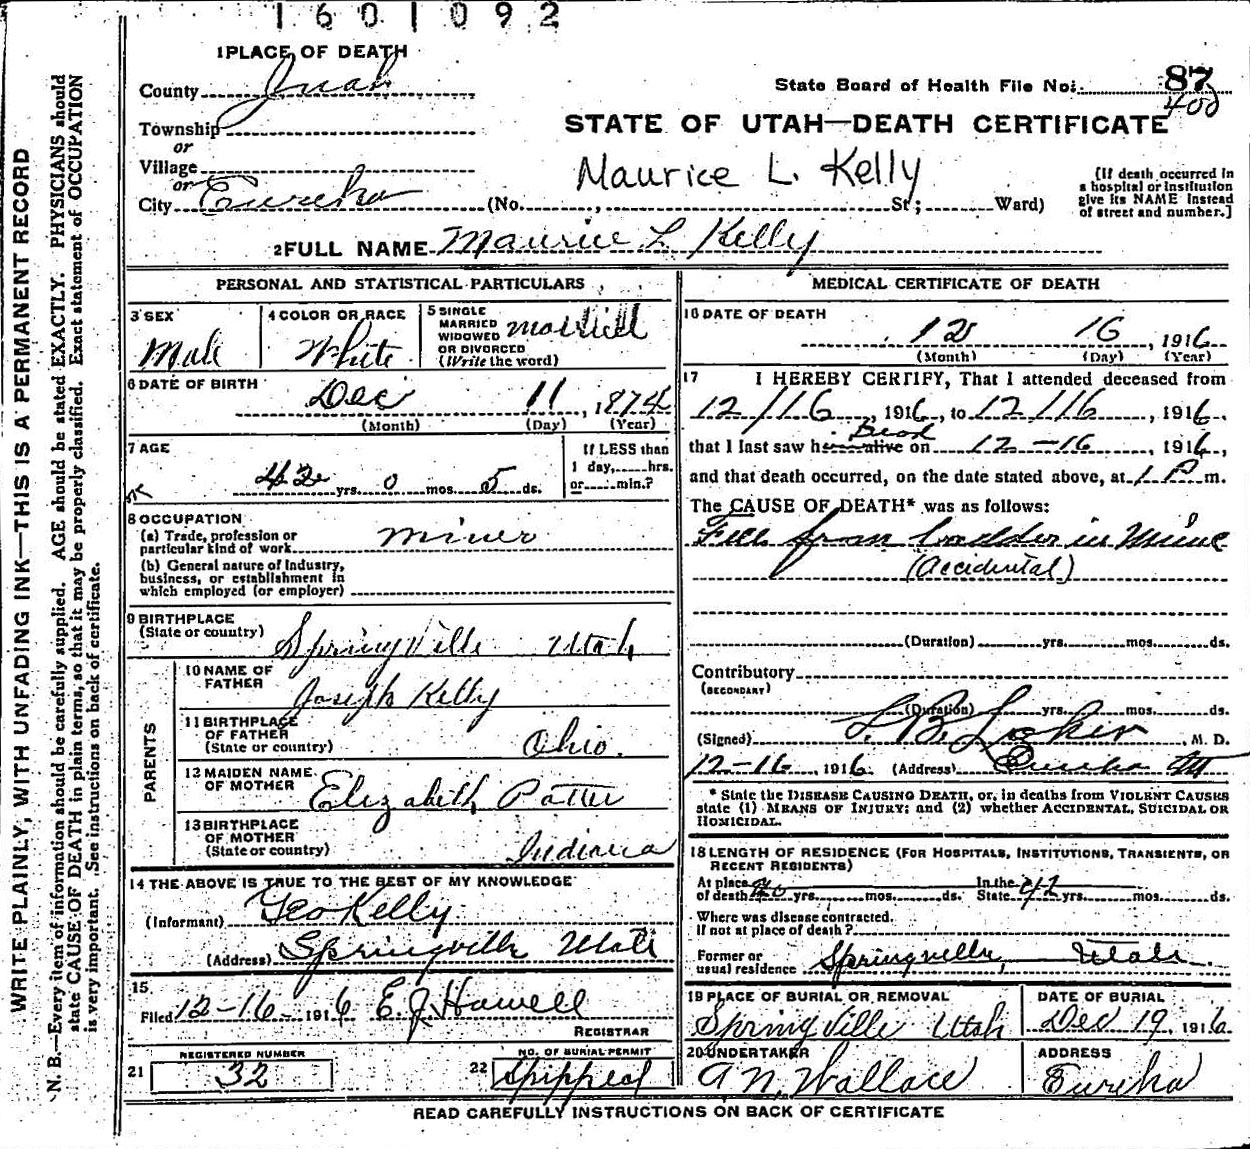 1601092
1 PLACE OF DEATH
County Juab
State Board of Health File No. 87
400
Township
or
Village
or
City Eureka (No. , St; Ward)
STATE OF UTAH—DEATH CERTIFICATE
Maurice L. Kelly
(If death occurred in
a hospital or institution
give its NAME instead
of street and number.]
2 FULL NAME Maurice L Kelly
PERSONAL AND STATISTICAL PARTICULARS
3 SEX
Male
4 COLOR OR RACE
White
5 SINGLE
MARRIED
WIDOWED
OR DIVORCED
(Write the word)
married
6 DATE OF BIRTH
Dec 11, 1874
(Month) (Day) (Year)
7 AGE
42 yrs. 0 mos. 5 ds.
If LESS than
1 day, hrs.
or min.?
8 OCCUPATION
(a) Trade, profession or
particular kind of work miner
(b) General nature of Industry,
business, or establishment in
which employed (or employer)
9 BIRTHPLACE
(State or country) Springville Utah
PARENTS
10 NAME OF
FATHER Joseph Kelly
11 BIRTHPLACE
OF FATHER
(State or country) Ohio.
12 MAIDEN NAME
OF MOTHER Elizabeth Potter
13 BIRTHPLACE
OF MOTHER
(State or country) Indiana
14 THE ABOVE IS TRUE TO THE BEST OF MY KNOWLEDGE
(Informant) Geo Kelly
(Address) Springville Utah
15
Filed 12-16- 1916 E. J. Howell
REGISTRAR
21 REGISTERED NUMBER
32
22 NO. OF BURIAL PERMIT
Shipped
MEDICAL CERTIFICATE OF DEATH
16 DATE OF DEATH
12 16, 1916
(Month) (Day) (Year)
17 I HEREBY CERTIFY, That I attended deceased from
12/16, 1916, to 12/16, 1916,
that I last saw him alive Dead on 12-16, 1916,
and that death occurred, on the date stated above, at 1 P m.
The CAUSE OF DEATH* was as follows:
Fell from ladder in Mine
(Accidental)
(Duration) yrs. mos. ds.
Contributory
(SECONDARY)
(Duration) yrs. mos. ds.
(Signed) , M. D.
12-16, 1916. (Address) Eureka Ut
* State the DISEASE CAUSING DEATH, or, in deaths from VIOLENT CAUSES
state (1) MEANS OF INJURY; and (2) whether ACCIDENTAL, SUICIDAL OR
HOMICIDAL.
18 LENGTH OF RESIDENCE (FOR HOSPITALS, INSTITUTIONS, TRANSIENTS, OR
RECENT RESIDENTS)
At place
of death 20 yrs. mos. ds. In the
State 42 yrs. mos. ds.
Where was disease contracted.
If not at place of death?
Former or
usual residence Springville, Utah.
19 PLACE OF BURIAL OR REMOVAL
Springville Utah
DATE OF BURIAL
Dec 19, 1916
20 UNDERTAKER
A N. Wallace
ADDRESS
Eureka
READ CAREFULLY INSTRUCTIONS ON BACK OF CERTIFICATE
WRITE PLAINLY, WITH UNFADING INK—THIS IS A PERMANENT RECORD
N. B.—Every item of information should be carefully supplied. AGE should be stated EXACTLY. PHYSICIANS should
state CAUSE OF DEATH in plain terms, so that it may be properly classified. Exact statement of OCCUPATION
is very important. See instructions on back of certificate.